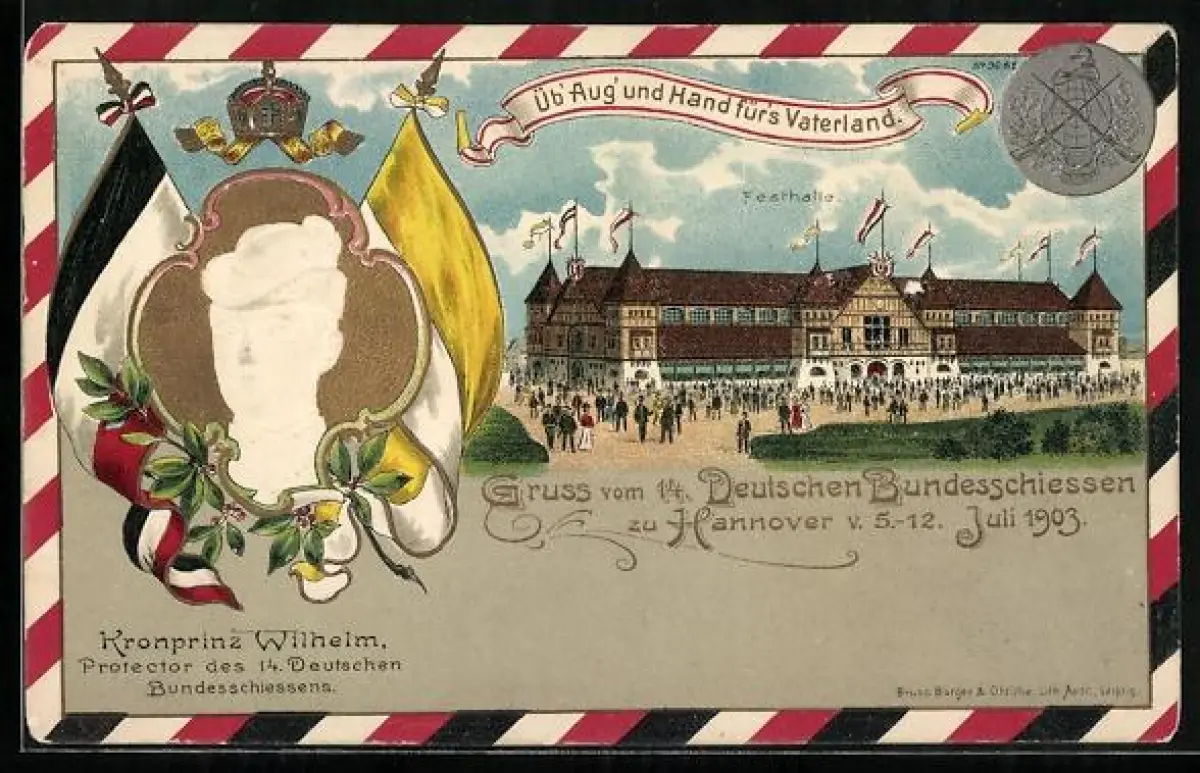 Üb' Aug' und Hand für's Vaterland.
Festhalle.
Gruss vom 14. Deutschen Bundesschiessen
zu Hannover v. 5.-12. Juli 1903.
Kronprinz Wilhelm,
Protector des 14. Deutschen
Bundesschiessens.
Bruno Bürger & Ottillie. Lith. Anst., Leipzig.